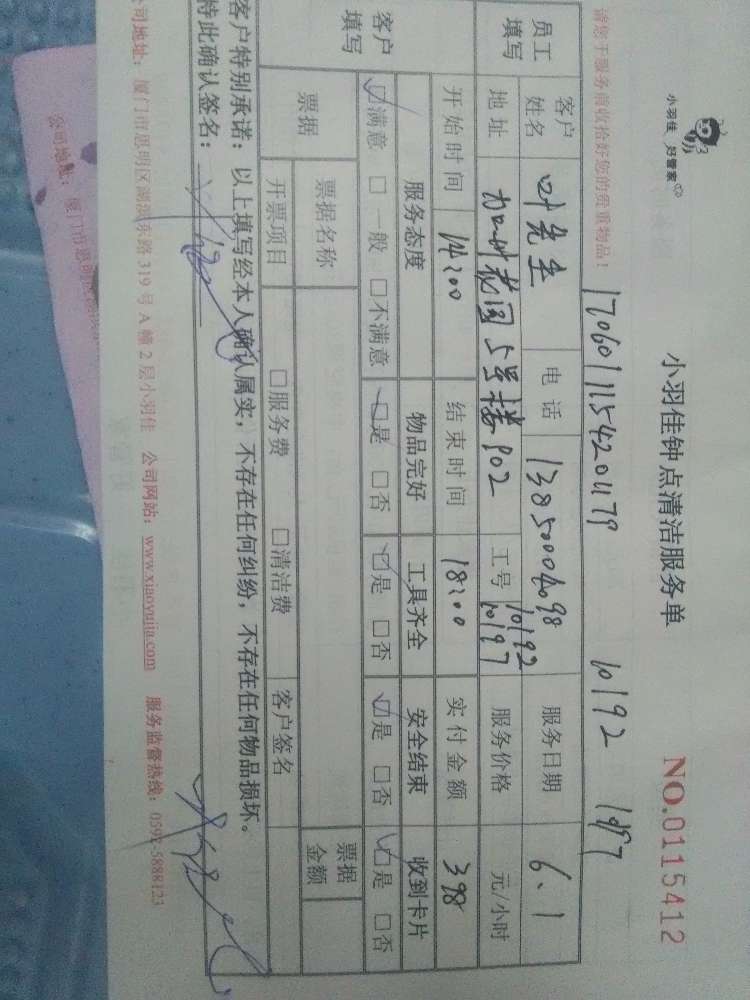 小羽佳 好管家
小羽佳钟点清洁服务单
NO.0115412
请您于服务前收拾好您的贵重物品！
170601115420179
10192
1097
员工填写
客户姓名 叶先生 电话 13850004098 服务日期 6.1
地址 加州花园5号楼902 工号 10192 10197 服务价格 元/小时
开始时间 14:00 结束时间 18:00 实付金额 398
客户填写
服务态度 物品完好 工具齐全 安全结束 收到卡片
☑满意 □一般 □不满意 ☑是 □否 ☑是 □否 ☑是 □否 ☑是 □否
票据 票据名称 票据金额
开票项目 □服务费 □清洁费 客户签名
客户特别承诺：以上填写经本人确认属实，不存在任何纠纷，不存在任何物品损坏。
特此确认签名：
公司地址：厦门市思明区湖滨东路319号A幢2层小羽佳 公司网站：www.xiaoyujia.com 服务监督热线：0592-5888123
公司地址：厦门市思明区湖滨东